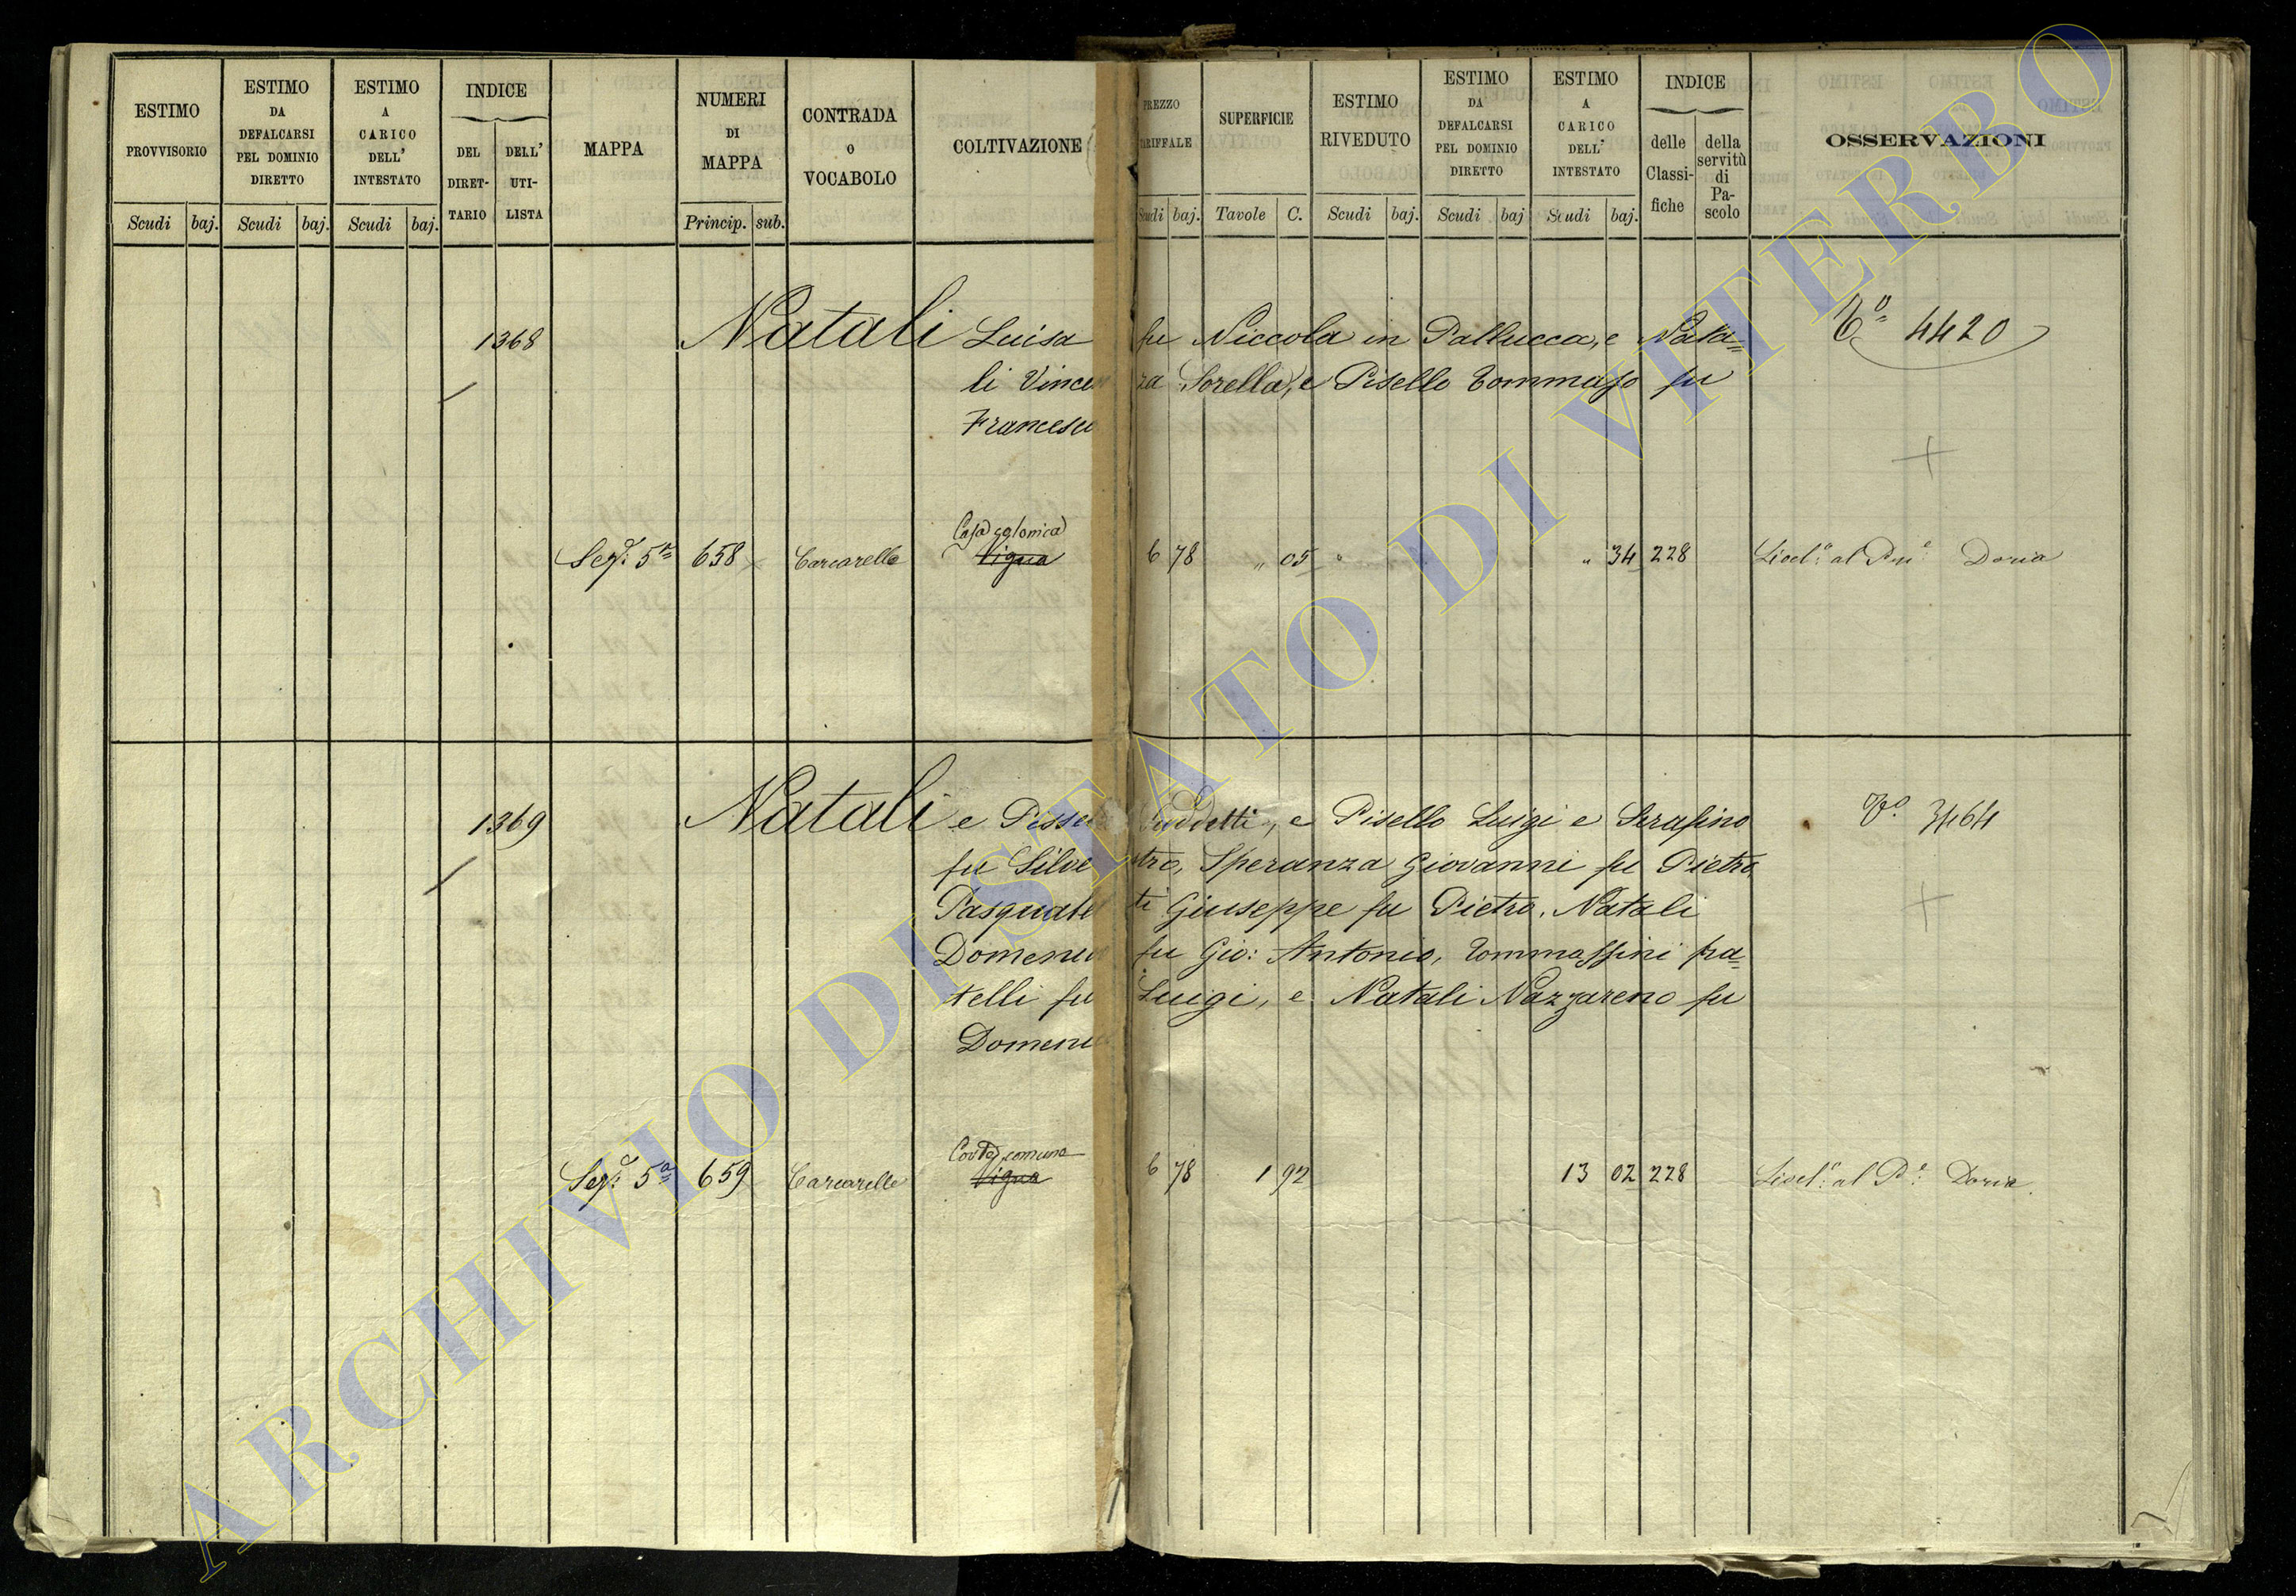 ESTIMO PROVVISORIO
ESTIMO DA DEFALCARSI PEL DOMINIO DIRETTO
ESTIMO A CARICO DELL' INTESTATO
INDICE
DEL DIRETTARIO
DELL' UTILISTA
MAPPA
NUMERI DI MAPPA
CONTRADA O VOCABOLO
COLTIVAZIONE
PREZZO TARIFFALE
SUPERFICIE
ESTIMO RIVEDUTO
ESTIMO DA DEFALCARSI PEL DOMINIO DIRETTO
ESTIMO A CARICO DELL' INTESTATO
INDICE
delle Classifiche
della servitù di Pascolo
OSSERVAZIONI
Scudi baj. Scudi baj. Scudi baj. Princip. sub. Scudi baj. Tavole C. Scudi baj. Scudi baj Scudi baj.
1368 Natali Luisa fu Niccola in Pallucca, e Nata= 4420
li Vincenza Sorella, e Pisello Tommaso fu
Francesco
Casa colonica
Sez. 5a 658 Carcarelle Vigna 6 78 " 05 " " 34 228 Livel. al Doria
1369 Natali e Suddetti, e Pisello Luigi e Serafino 3464
fu Silvestro, Speranza Giovanni fu Pietro,
Giuseppe fu Pietro, Natali
Domenico fu Gio: Antonio, Tommassini fra=
telli fu Luigi, e Natali Nazzareno fu
Domenico
Corte comune
Sez. 5a 659 Carcarelle Vigna 6 78 1 92 13 02 228 Livel. al Doria
ARCHIVIO DI STATO DI VITERBO